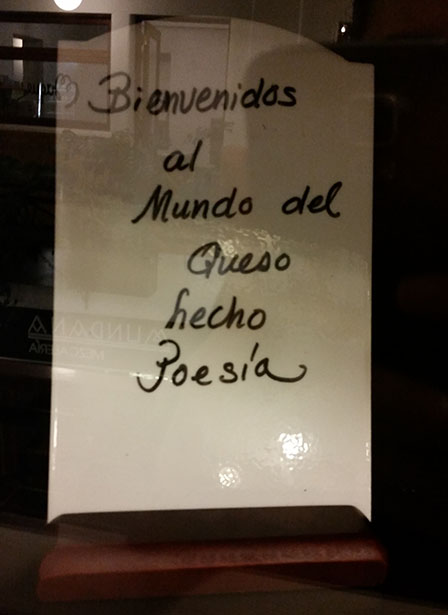 Bienvenidos
al
Mundo del
Queso
hecho
Poesía
MEZCALERÍA